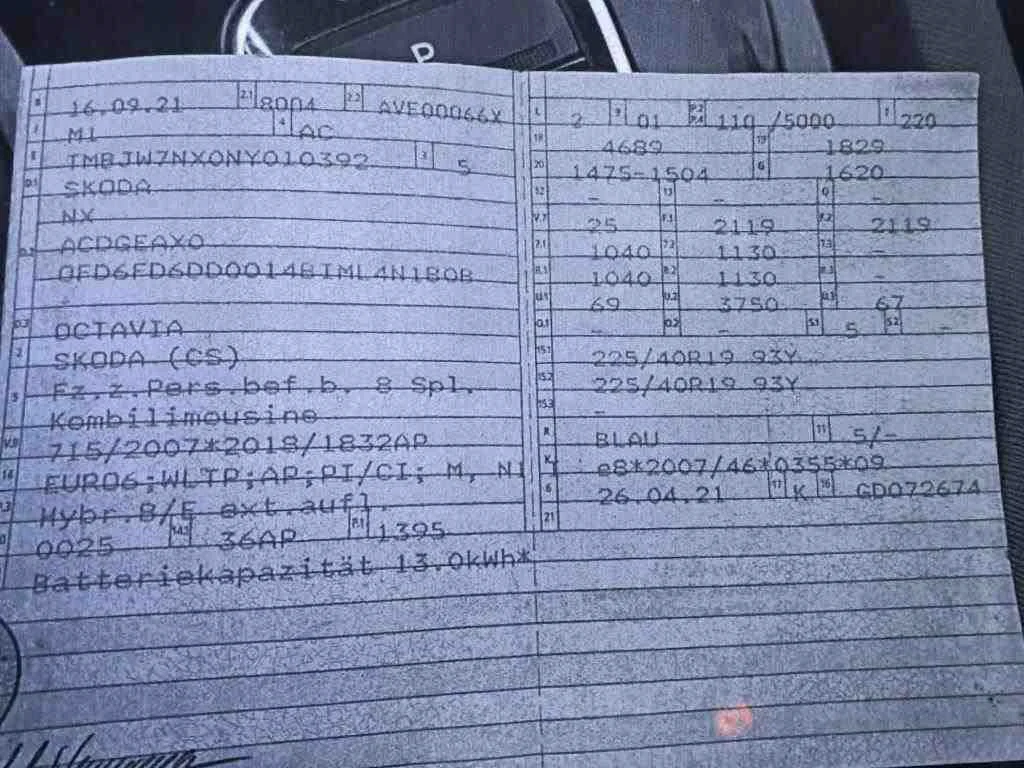 P
B 16.09.21 2.1 8004 2.2 AVE00066X
J M1 4 AC
E TMBJW7NX0NY010392 3 5
D.1 SKODA
NX
D.2 ACDGEAX0
0FD6FD6DD0014BIML4N1B0B
D.3 OCTAVIA
2 SKODA (CS)
5 Fz.z.Pers.bef.b. 8 Spl.
Kombilimousine
V.9 715/2007*2018/1832AP
14 EURO6;WLTP;AP;PI/CI; M, N1
P.3 Hybr.B/E ext.aufl.
10 0025 14.1 36AP P.1 1395
Batteriekapazität 13.0kWh*
L 2 9 01 P.2 P.4 110 /5000 T 220
18 4689 19 1829
20 1475-1504 G 1620
12 - 13 - Q -
V.7 25 F.1 2119 F.2 2119
7.1 1040 7.2 1130 7.3 -
8.1 1040 8.2 1130 8.3 -
U.1 69 U.2 3750 U.3 67
O.1 - O.2 - S.1 5 S.2 -
15.1 225/40R19 93Y
15.2 225/40R19 93Y
15.3 -
R BLAU 11 5/-
K e8*2007/46*0355*09
6 26.04.21 17 K 16 GD072674
21